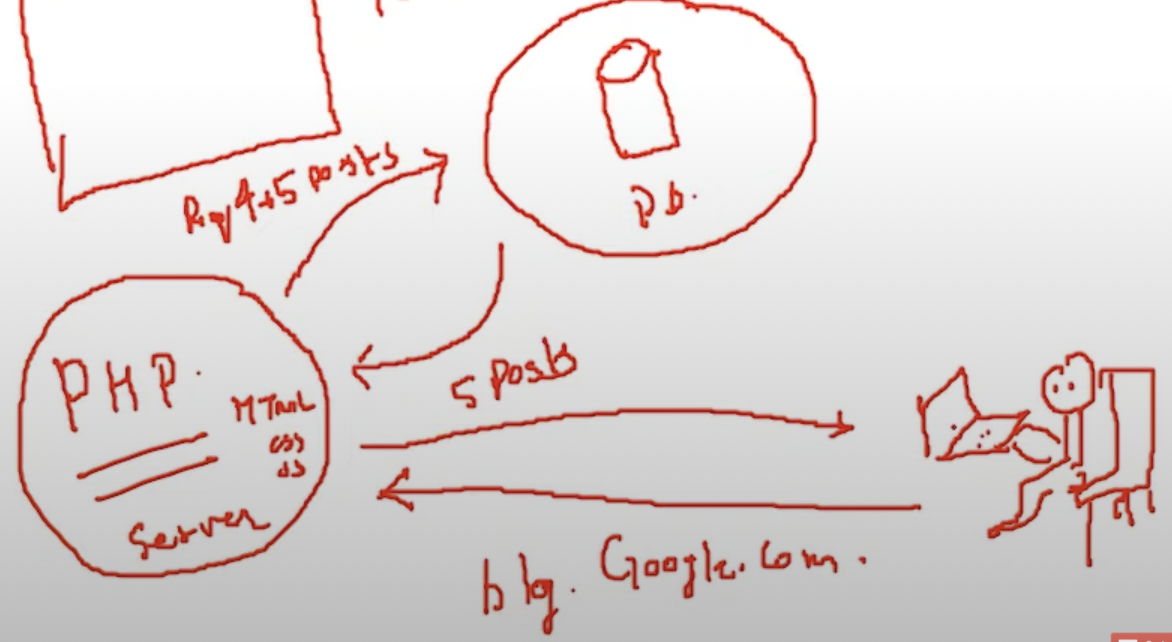 5 posts
Db.
PHP.
HTML
CSS
JS
Server
5 Posts
blog. Google.com.